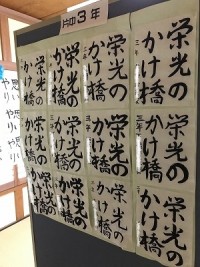 片中3年
栄光の
かけ橋
栄光の
かけ橋
栄光の
かけ橋
栄光の
かけ橋
栄光の
かけ橋
栄光の
かけ橋
栄光の
かけ橋
栄光の
かけ橋
栄光の
かけ橋
栄光の
かけ橋
栄光の
かけ橋
栄光の
かけ橋
思いやり
思いやり